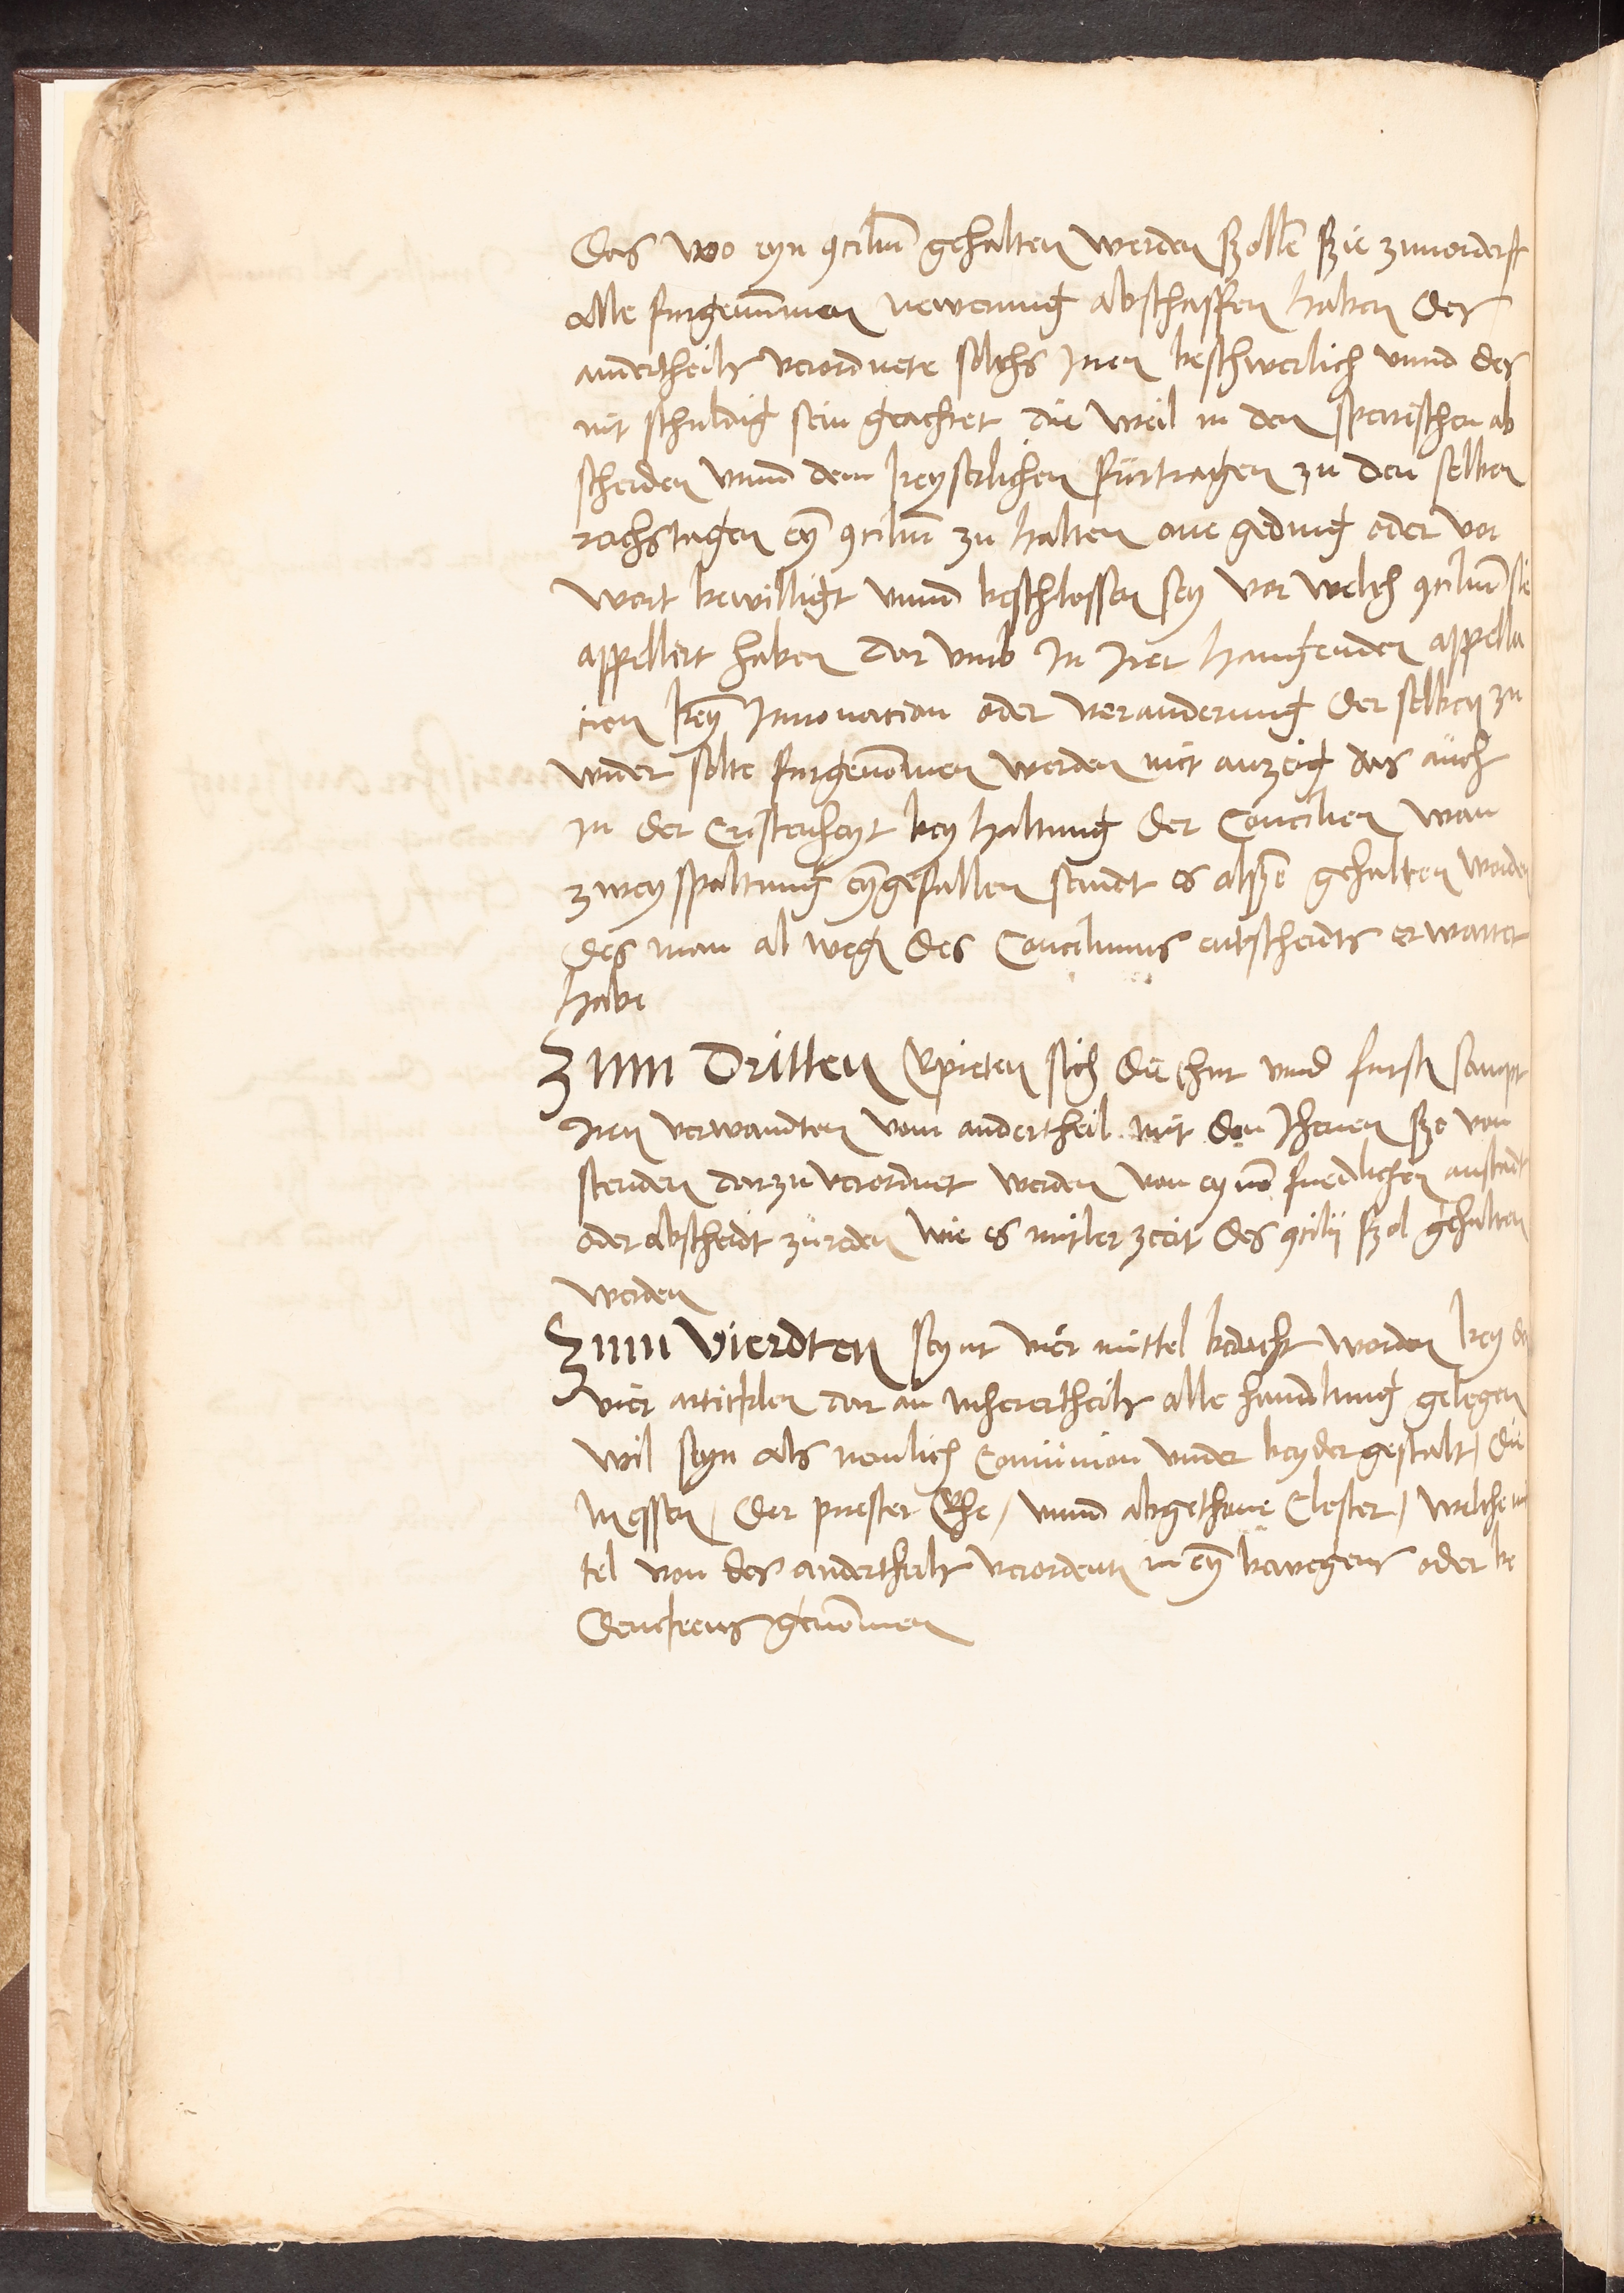 Das wo eyn ꝯciliu̅ gehalten werden szolle̅ szie zuuorderst
alle furgenu̅men newerung abschaffen haben des
andertheils verordnete solchs Inen beschwerlich vnnd des
nit schuldig sein geachtet die weil in den speirischen ab
scheiden vnnd dem keyserlichen fürtragen zu den selben
reichstagen ey̅ ꝯciliu̅ zu halten one geding oder vor
wort bewilligt vnnd beschlossen sey vor welch ꝯciliu̅ sie
appellirt haben dar vmb in irer hangenden appella
cien key̅ Innouacion oder veranderung der selben zu
wider solte furgeno̅men werden mit anzeig das auch
in der Cristenheyt bey haltung der Concilien wan
zweyspaltung ey̅gefallen seindt es alsze̅ gehalten worden
des man al weg des Conciliums entscheidts erwartet
habe
Zum Dritten Erpieten sich die chur vnnd furste̅ sampt
Iren verwandten vom andertheil mit den Ihenen szo von
stenden darzu verordnet werden von eyne̅ fridlichen anstadt
oder abscheidt zureden wie es mitler zeeit des ꝯcilij szol gehalten
werden
Zum Vierdten seynt vier mittel bedacht worden bey den
vier artickelen dar an Iherertheils alle handlung gelegen
wil seyn als nemlich Comunion vnder beyder gestalt / die
Messen / der priester Ehe / vnnd abgethane Closter / welche mi
tel von des andertheils verordent̅ in ey̅ bewegens oder be
denckens geno̅men